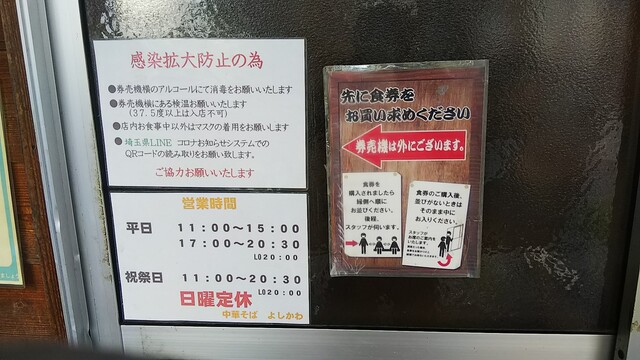 感染拡大防止の為
●券売機横のアルコールにて消毒をお願いいたします
●券売機横にある検温お願いいたします
(37.5度以上は入店不可)
●店内お食事中以外はマスクの着用をお願いします
● 埼玉県LINE コロナお知らせシステムでの
QRコードの読み取りをお願い致します。
ご協力お願いいたします
営業時間
平日 11:00～15:00
17:00～20:30
LO20:00
祝祭日 11:00～20:30
LO20:00
日曜定休
中華そば よしかわ
先に食券を
お買い求めください
券売機は外にございます。
食券を
購入されましたら
縁側へ順に
お並びください。
後程、
スタッフが伺います。
食券のご購入後、
並びがないときは
そのまま中に
お入りください。
スタッフが
お席のご案内を
いたします。